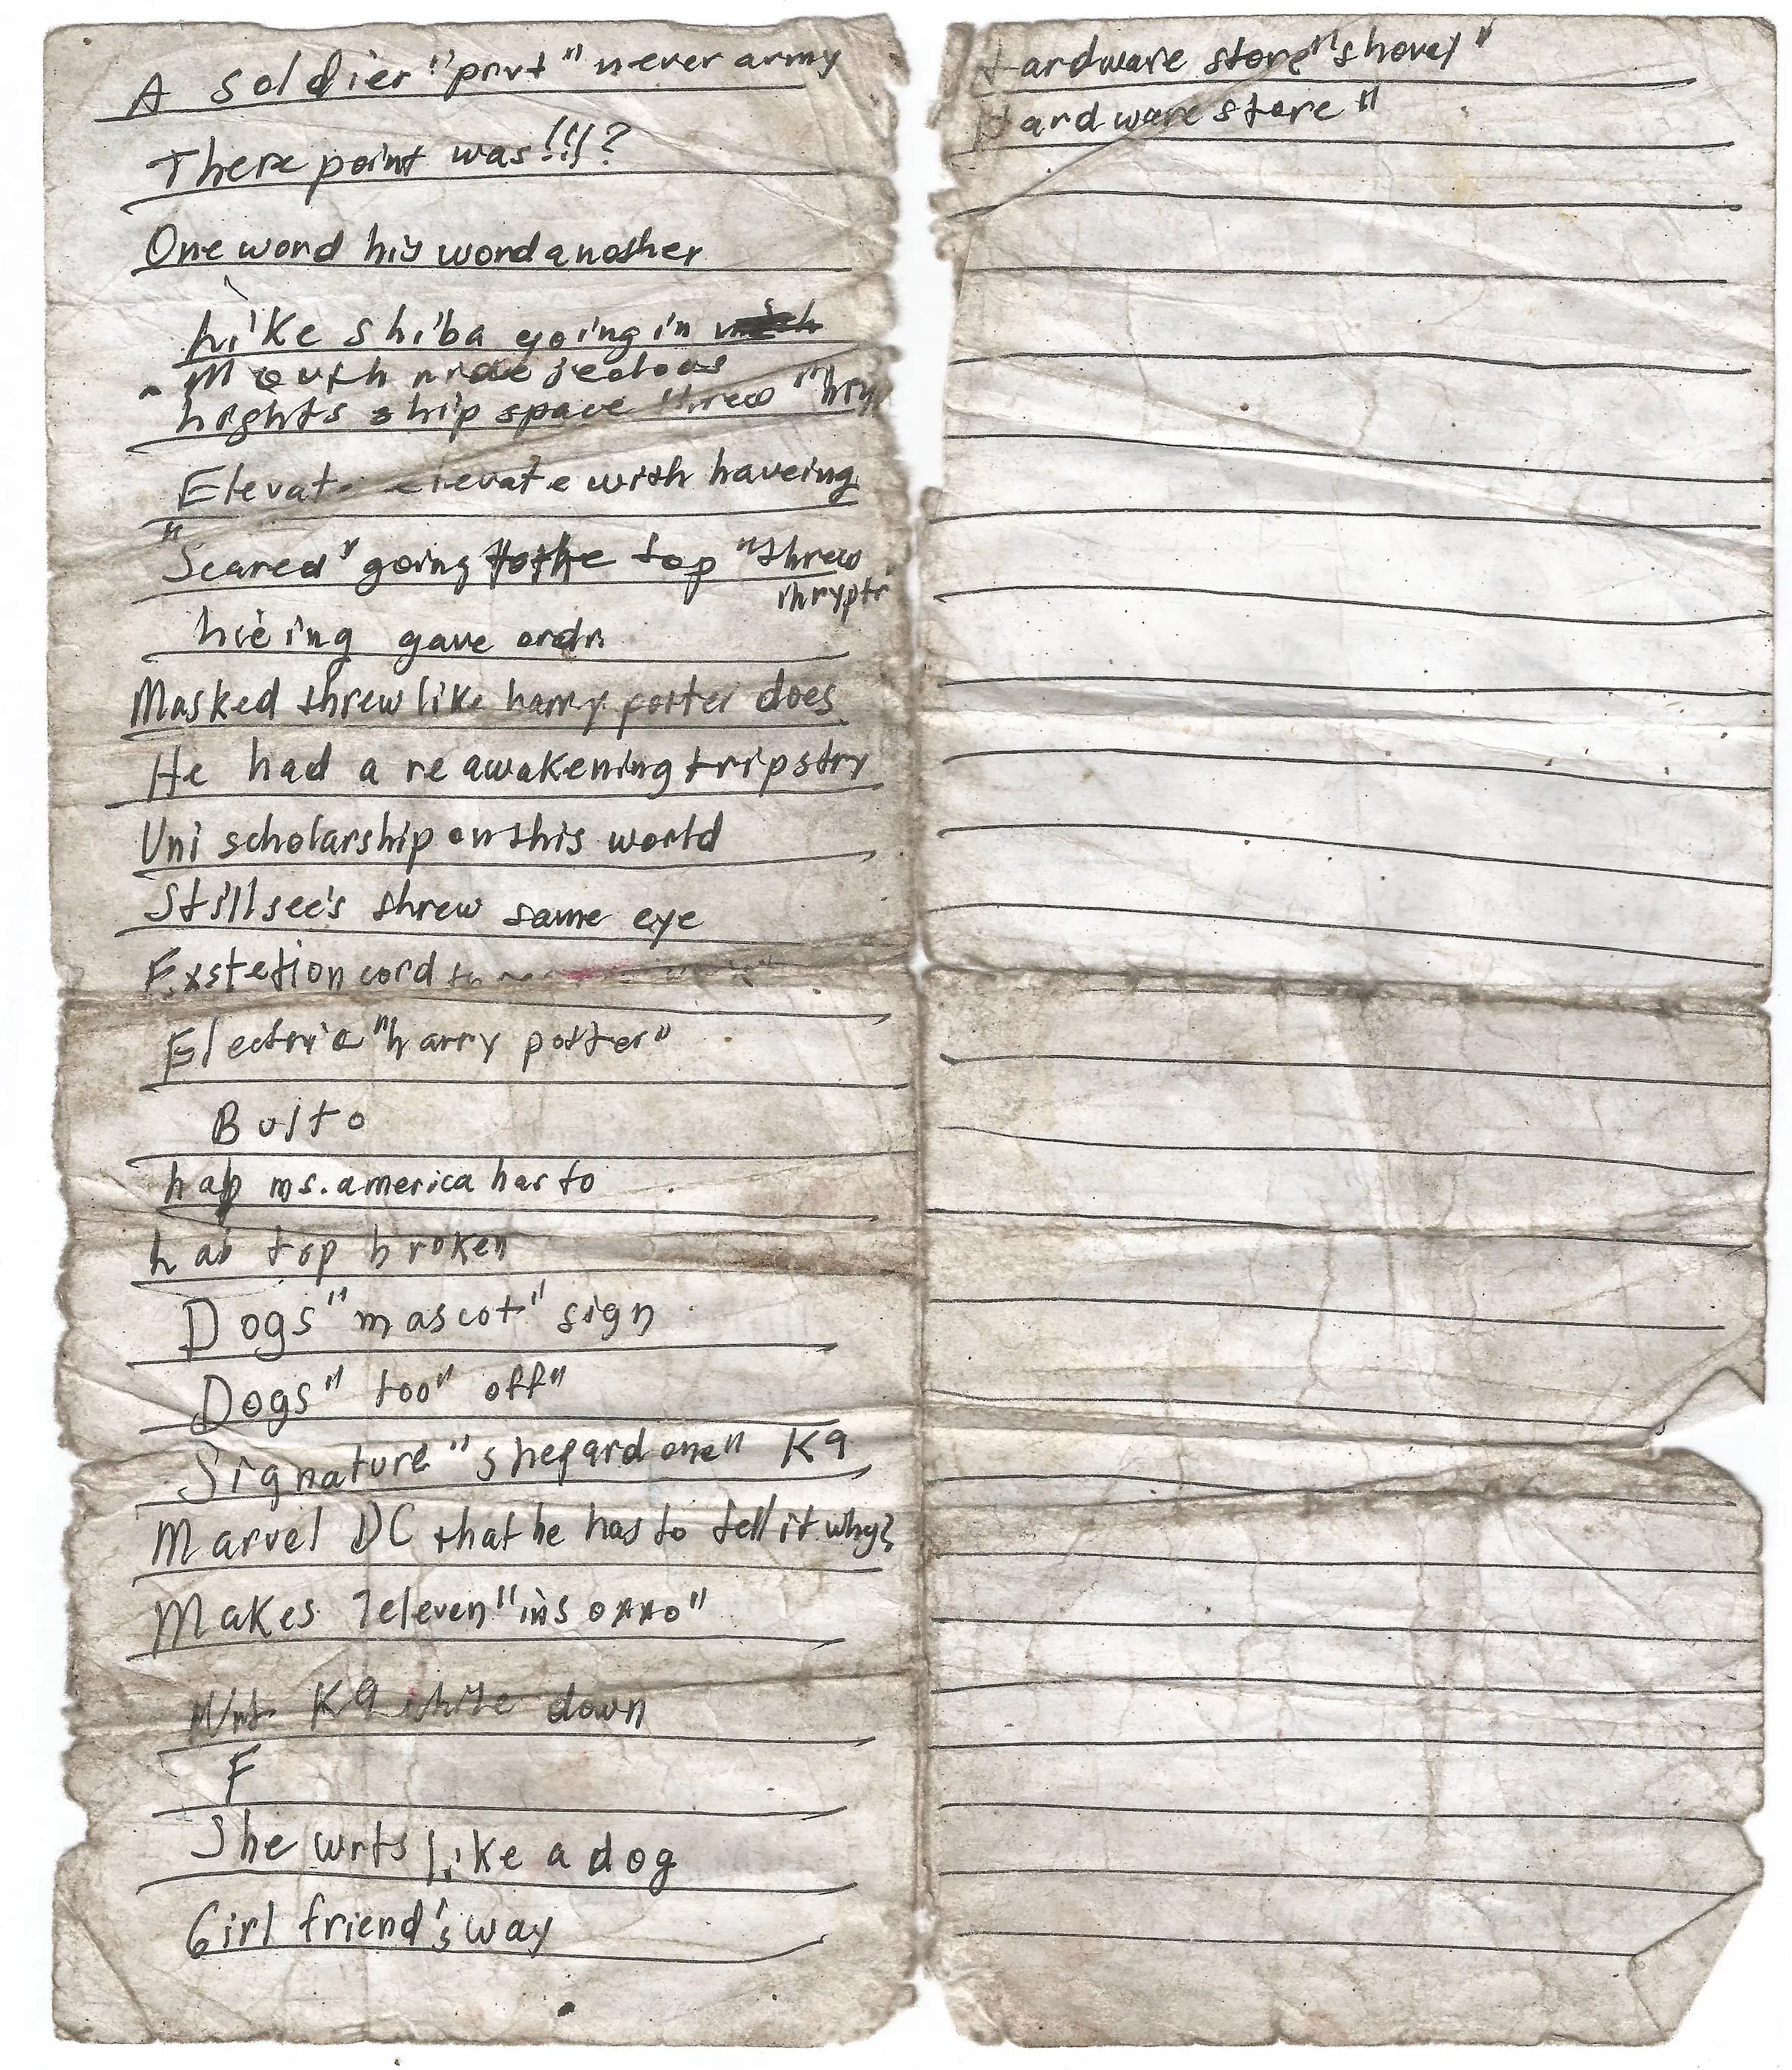 A soldier "prvt" never army
There point was!!!?
One word his word another
Like shiba going in
Mouth jealous
lights ship space threw
Elevate elevate with haveing
"Scared" going to the top "threw
hieing gave ordn
Masked threw like harry potter does
He had a reawakening tripstry
Uni scholarship on this world
Still see's threw same eye
Exstetion cord
Electric "harry potter"
Bulto
hap ms. america has to
hab top broken
Dogs "mascot" sign
Dogs" too" off"
Signature "shepard one" K9
Marvel DC that he has to tell it why?
Makes 7eleven
K9 down
F
She wrts like a dog
Girl friend's way
Hardware store "shovel"
Hardware store"